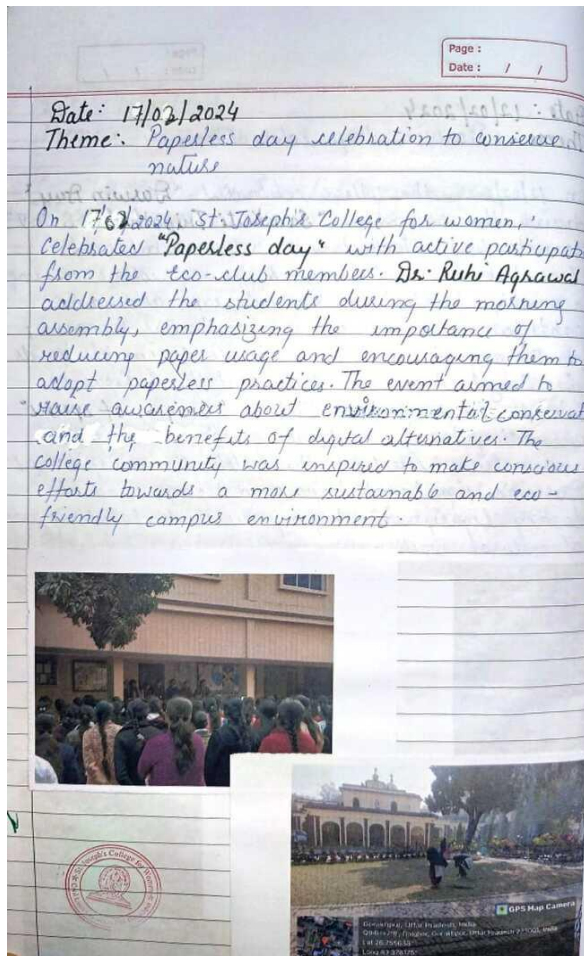 Page :
Date : / /
Date: 17/02/2024
Theme: Paperless day celebration to conserve
nature
On 17/02/2024 St. Joseph's College for women,
celebrated "Paperless day" with active participat
from the Eco-club members. Dr. Ruhi Agrawal
addressed the students during the morning
assembly, emphasizing the importance of
reducing paper usage and encouraging them to
adopt paperless practices. The event aimed to
raise awareness about environmental conservat
and the benefits of digital alternatives. The
college community was inspired to make conscious
efforts towards a more sustainable and eco-
friendly campus environment.
St. Joseph's College for Women
GPS Map Camera
Gorakhpur, Uttar Pradesh, India
Gorakhpur, Uttar Pradesh 273001, India
Lat 26.755633